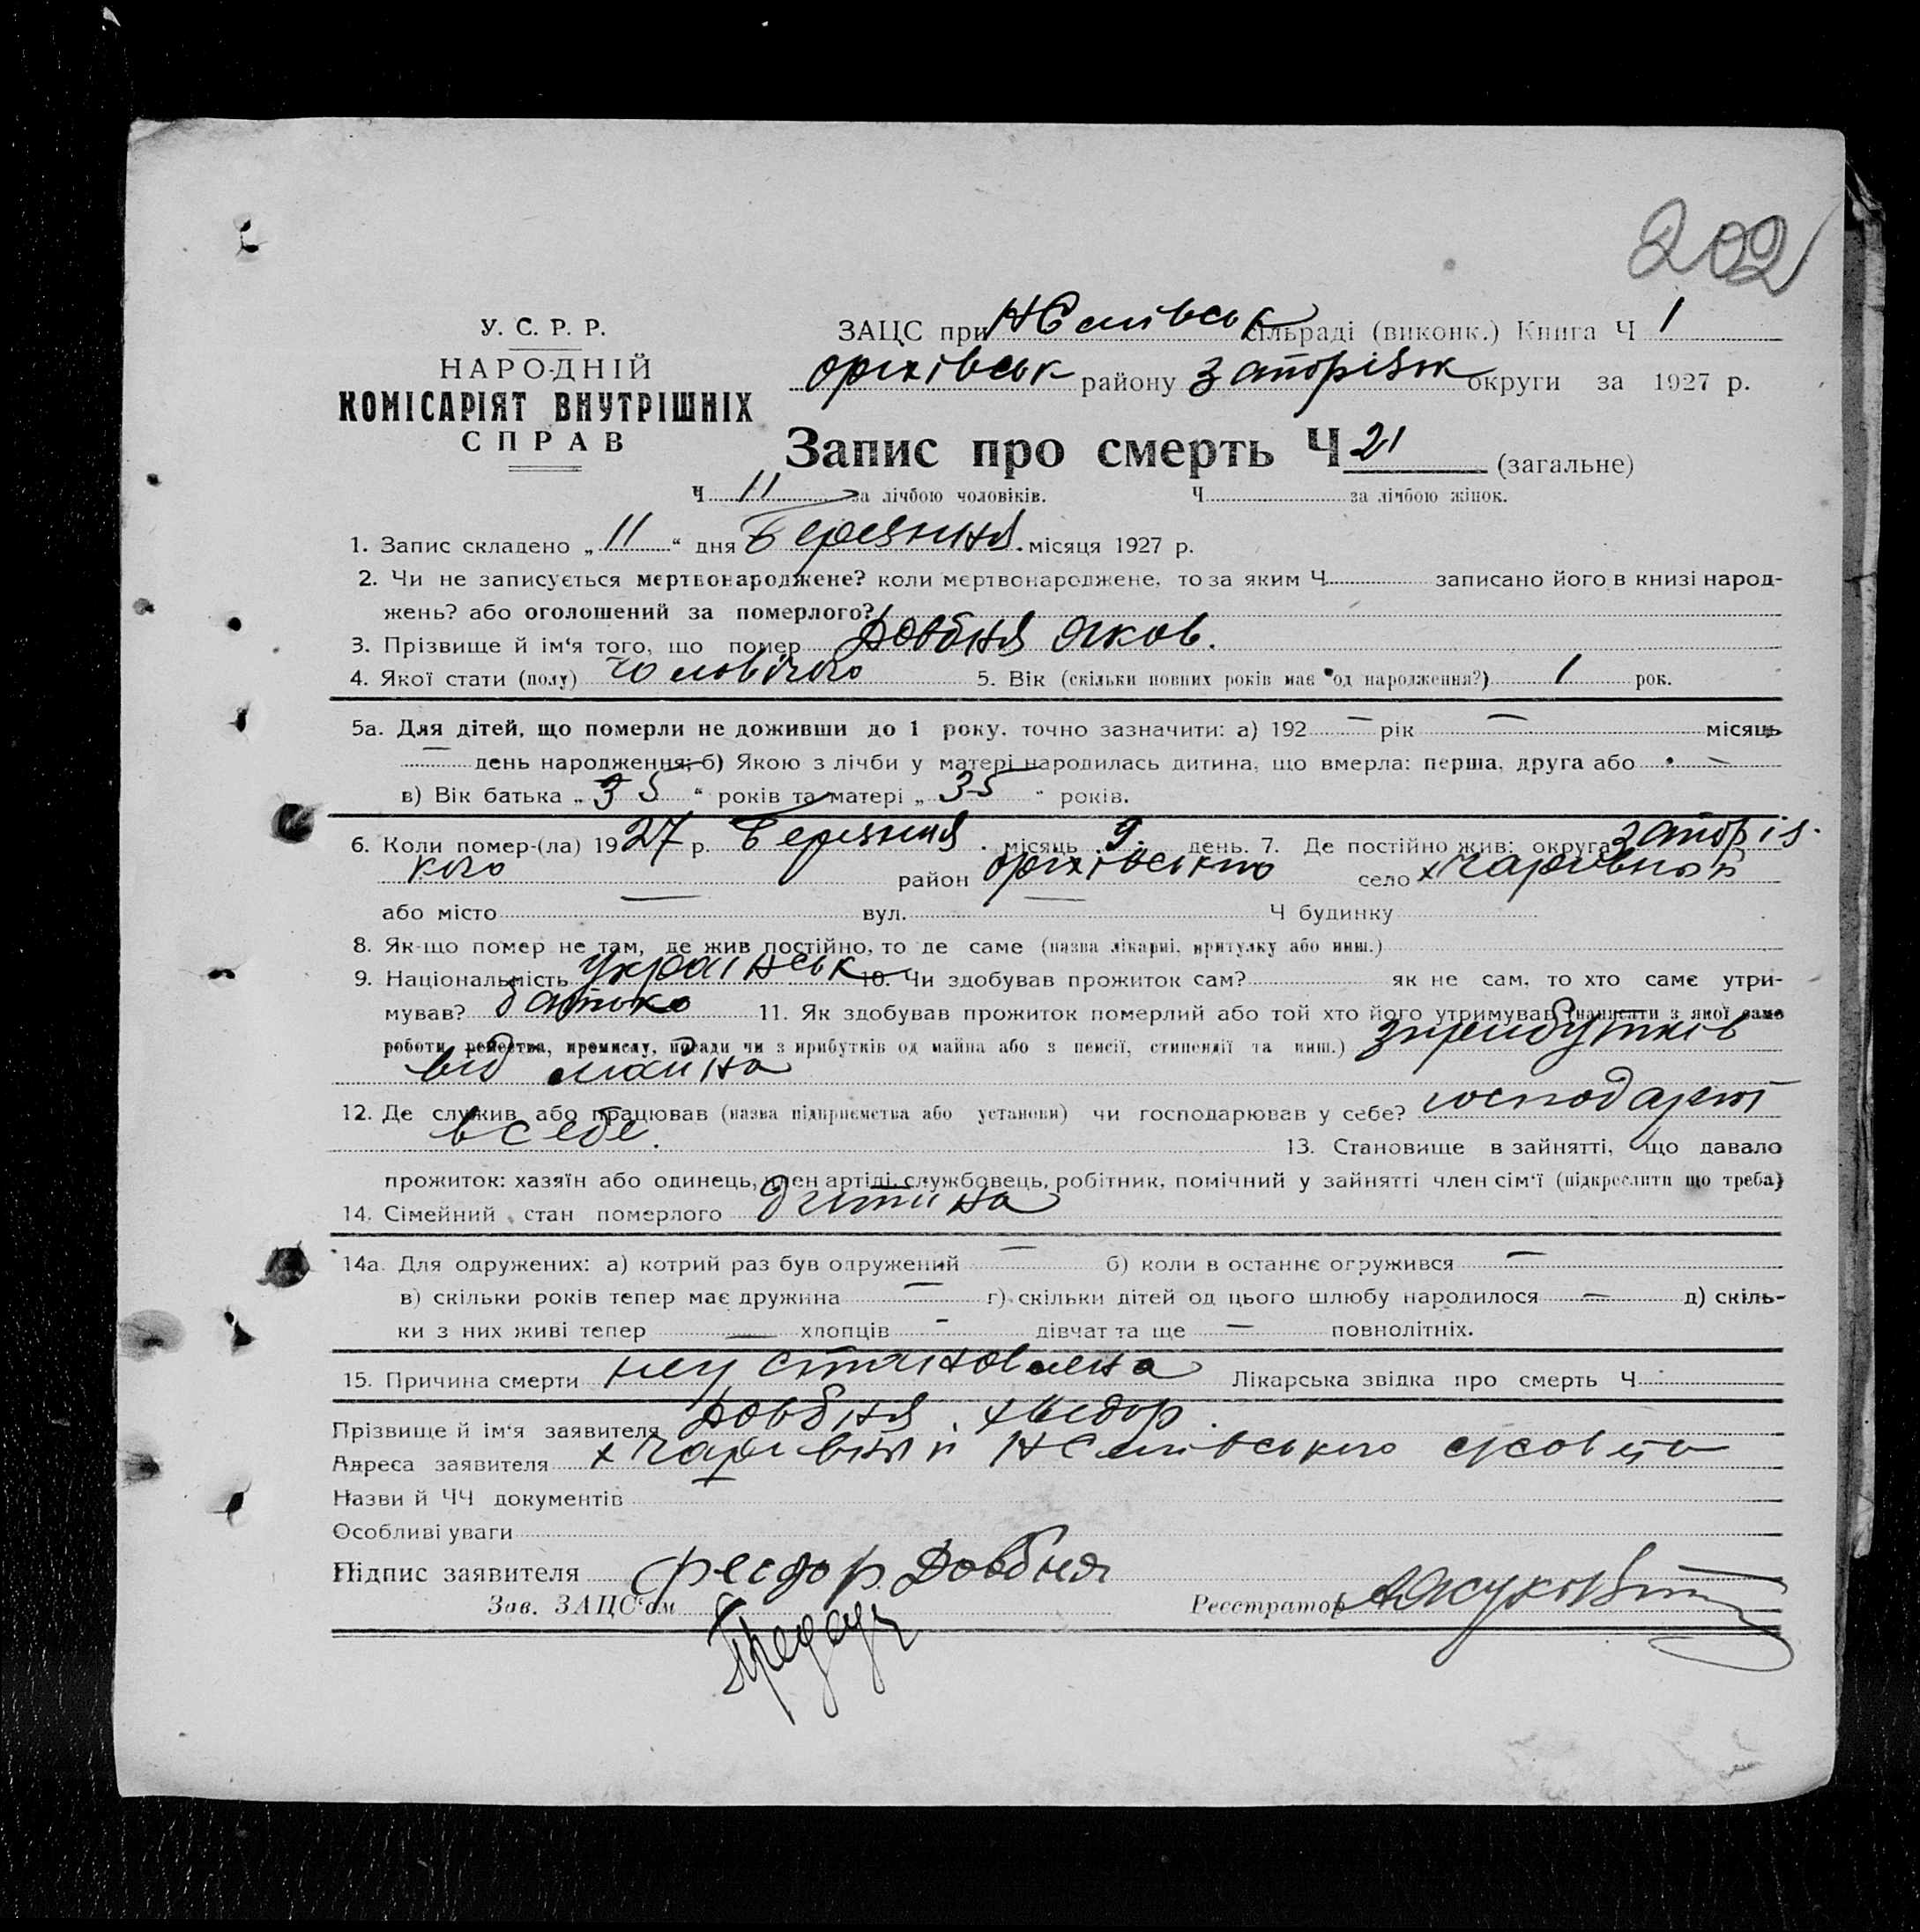 202
У. С. Р. Р.
НАРОДНІЙ
КОМІСАРІЯТ ВНУТРІШНІХ
СПРАВ
ЗАЦС при сільраді (виконк.) Книга Ч 1
оріхівськ району запорізьк округи за 1927 р.
Запис про смерть Ч 21 (загальне)
Ч 11 за лічбою чоловіків. Ч за лічбою жінок.
1. Запис складено „ 11 “ дня Березння місяця 1927 р.
2. Чи не записується мертвонароджене? коли мертвонароджене, то за яким Ч записано його в книзі народ-
жень? або оголошений за померлого?
3. Прізвище й ім‘я того, що помер Довбня Яков.
4. Якої стати (полу) чоловічого 5. Вік (скільки повних років має од народження?) 1 рок.
5а. Для дітей, що померли не доживши до 1 року, точно зазначити: а) 192 — рік — місяць
— день народження; б) Якою з лічби у матері народилась дитина, що вмерла: перша, друга або —
в) Вік батька „ 35 “ років та матері „ 35 “ років.
6. Коли помер-(ла) 1927 р. Березння місяць 9 день. 7. Де постійно жив: округа запоріз-
кого район оріхівського село х Чарівний
або місто — вул. — Ч будинку
8. Як-що помер не там, де жив постійно, то де саме (назва лікарні, притулку або инш.)
9. Національність українськ 10. Чи здобував прожиток сам? як не сам, то хто саме утри-
мував? батько 11. Як здобував прожиток померлий або той хто його утримував (написати з якої саме
роботи, ремества, промислу, посади чи з прибутків од майна або з пенсії, стипендії та инш.) з прибутків
від майна
12. Де служив або працював (назва підприємства або установи) чи господарював у себе? господарюв
в себе. 13. Становище в зайнятті, що давало
прожиток: хазяїн або одинець, член артіді, службовець, робітник, помічний у зайнятті член сім‘ї (підкреслити що треба)
14. Сімейний стан померлого дитина
14а. Для одружених: а) котрий раз був одружений — б) коли в останнє огружився —
в) скільки років тепер має дружина — г) скільки дітей од цього шлюбу народилося — д) скіль-
ки з них живі тепер — хлопців - дівчат та ще — повнолітніх.
15. Причина смерти неустановлена Лікарська звідка про смерть Ч
Прізвище й ім‘я заявителя Довбня Хведор.
Адреса заявителя х Чарівний
Назви й ЧЧ документів
Особливі уваги
Підпис заявителя Феодор Довбня
Зав. ЗАЦС‘ом Реєстратор